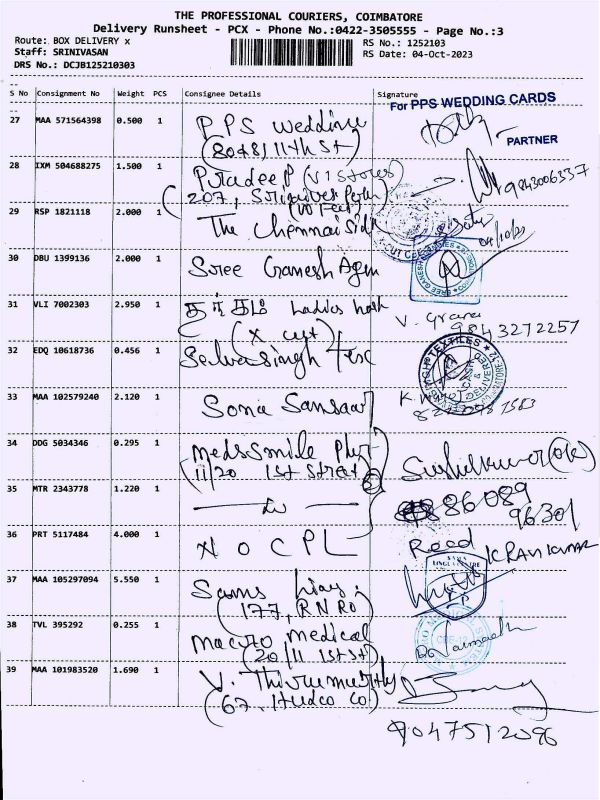 THE PROFESSIONAL COURIERS, COIMBATORE
Delivery Runsheet - PCX - Phone No.:0422-3505555 - Page No.:3
Route: BOX DELIVERY x
RS No.: 1252103
Staff: SRINIVASAN
RS Date: 04-Oct-2023
DRS No.: DCJB125210303
S No Consignment No Weight PCS Consignee Details Signature
For PPS WEDDING CARDS
27 MAA 571564398 0.500 1 PPS Wedding
(8048, 11th St)
PARTNER
28 IXM 504688275 1.500 1 Pradeep (V1 Stores
207, 9843006337
29 RSP 1821118 2.000 1 The Chennai Silk
04/10/23
30 DBU 1399136 2.000 1 Sree Ganesh Agen
31 VLI 7002303 2.950 1 Ladies
V. 9843272257
32 EDQ 10618736 0.456 1 Selvasingh Tex
33 MAA 102579240 2.120 1 Sonia Sansaar
34 DDG 5034346 0.295 1 Medssmile
(11/20 1st Street)
35 MTR 2343778 1.220 1
86089
96301
36 PRT 5117484 4.000 1 H O C P L
K RAVI KUMAR
37 MAA 105297094 5.550 1 Sams
177, R N
38 TVL 395292 0.255 1 Macro medical
(20/11 1st St)
39 MAA 101983520 1.690 1 V. Thirumurthy
(67, Hudco Co)
9047512096